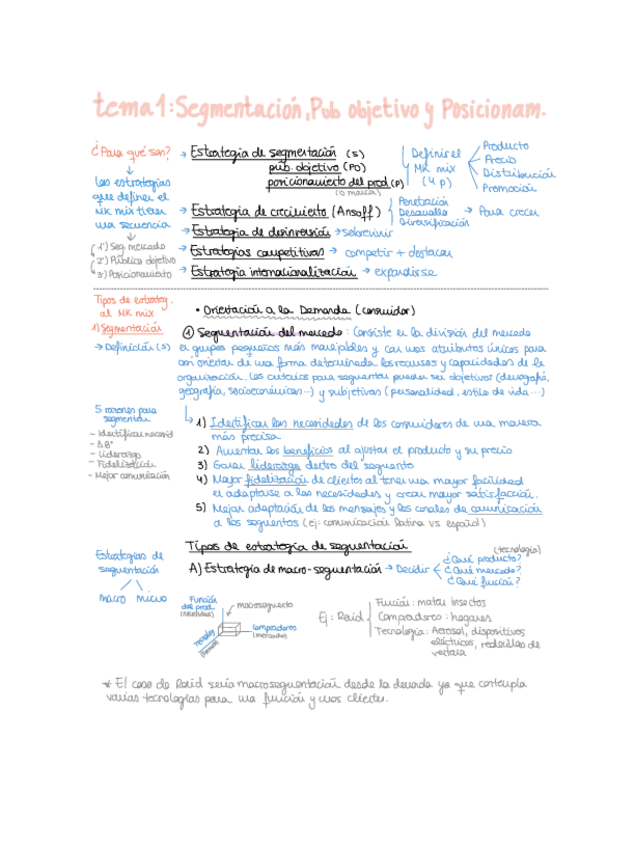 tema 1: Segmentación, Pub objetivo y Posicionam.
¿Para qué son?
↓
Las estrategias
que definen el
MK mix tienen
una secuencia
↓
1º) Seg. mercado
2º) Público objetivo
3º) Posicionamiento
→ Estrategia de segmentación (S)
púb. objetivo (PO)
posicionamiento del prod (P)
(o marca)
Definir el
MK mix
(4 p)
Producto
Precio
Distribución
Promoción
→ Estrategia de crecimiento (Ansoff)
Penetración
Desarrollo
Diversificación
→ Para crecer
→ Estrategia de desinversión → sobrevivir
→ Estrategias competitivas → competir + destacar
→ Estrategia internacionalización → expandirse
Tipos de estrateg.
al MK mix
1) Segmentación
→ Definición (S)
• Orientación a la Demanda (consumidor)
① Segmentación del mercado: Consiste en la división del mercado
en grupos pequeños más manejables y con unos atributos únicos para
así orientar de una forma determinada los recursos y capacidades de la
organización. Los criterios para segmentar pueden ser objetivos (demografía,
geografía, socioeconómicas...) y subjetivos (personalidad, estilo de vida...)
5 razones para
segmentar
- Identificar necesid
- ΔBº
- Liderazgo
- Fidelización
- Mejor comunicación
1) Identificar las necesidades de los consumidores de una manera
más precisa
2) Aumentar los beneficios al ajustar el producto y su precio
3) Ganar liderazgo dentro del segmento
4) Mayor fidelización de clientes al tener una mayor facilidad
en adaptarse a las necesidades y crear mayor satisfacción.
5) Mejor adaptación de los mensajes y los canales de comunicación
a los segmentos (ej: comunicación latina vs español)
Tipos de estrategia de segmentación
Estrategias de
segmentación
macro micro
A) Estrategia de macro-segmentación → Decidir
(tecnología)
¿Qué producto?
¿Qué mercado?
¿Qué función?
Función
del prod.
(necesidad)
macrosegmento
Compradores
(mercados)
Ej: Raid
Función: matar insectos
Compradores: hogares
Tecnología: Aerosol, dispositivos
eléctricos, redecillas de
ventana
* El caso de Raid sería macrosegmentación desde la demanda ya que contempla
varias tecnologías para una función y unos clientes.